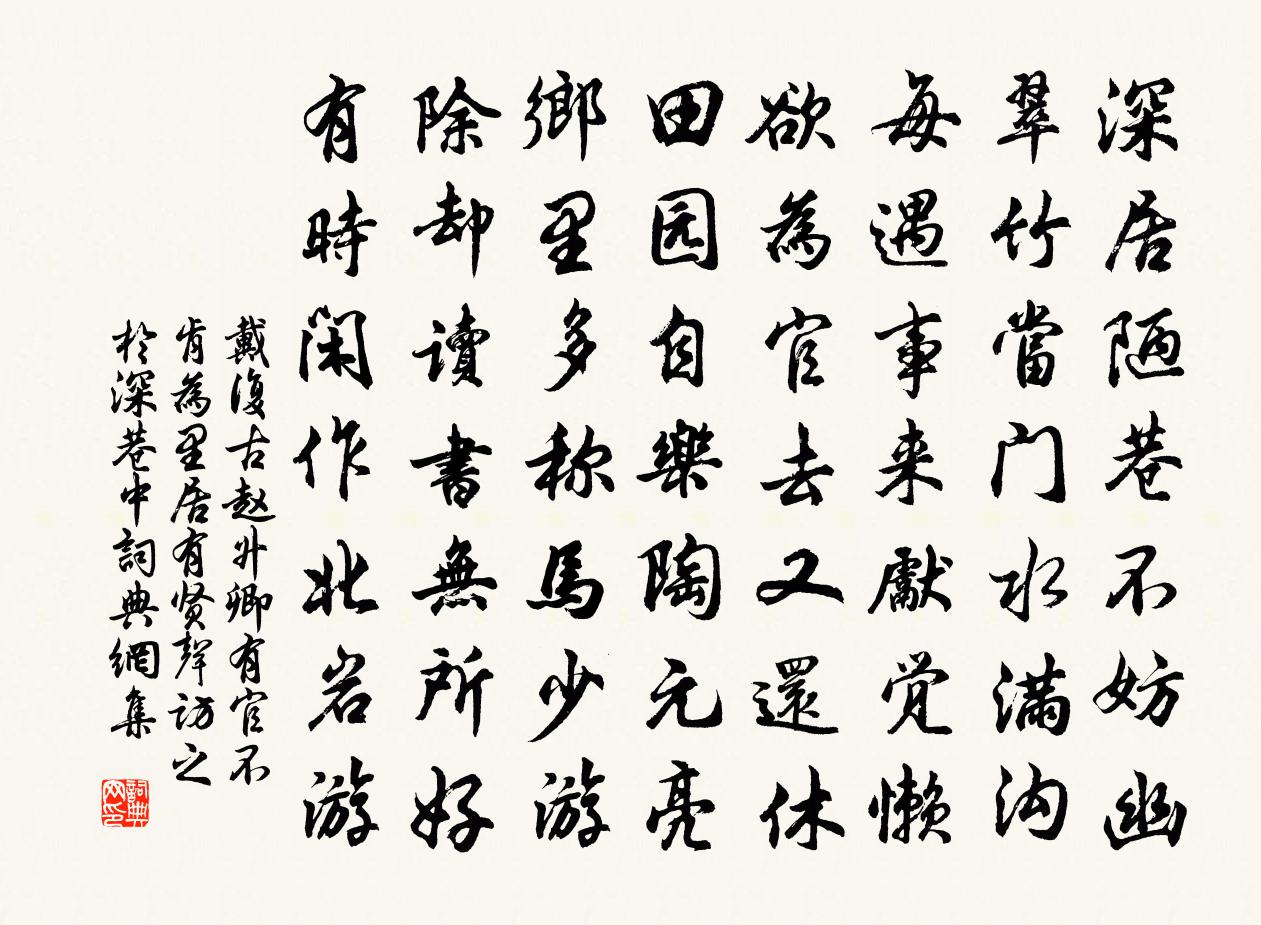 深居陋巷不妨幽
翠竹當门水滿沟
每遇事来獻觉懒
欲為官去又還休
田园自樂陶元亮
鄉里多称馬少游
除却讀書無所好
有時閑作北岩游
戴復古赵升卿有官不
肯為里居有贤聲访之
於深巷中詞典網集
詞典网印